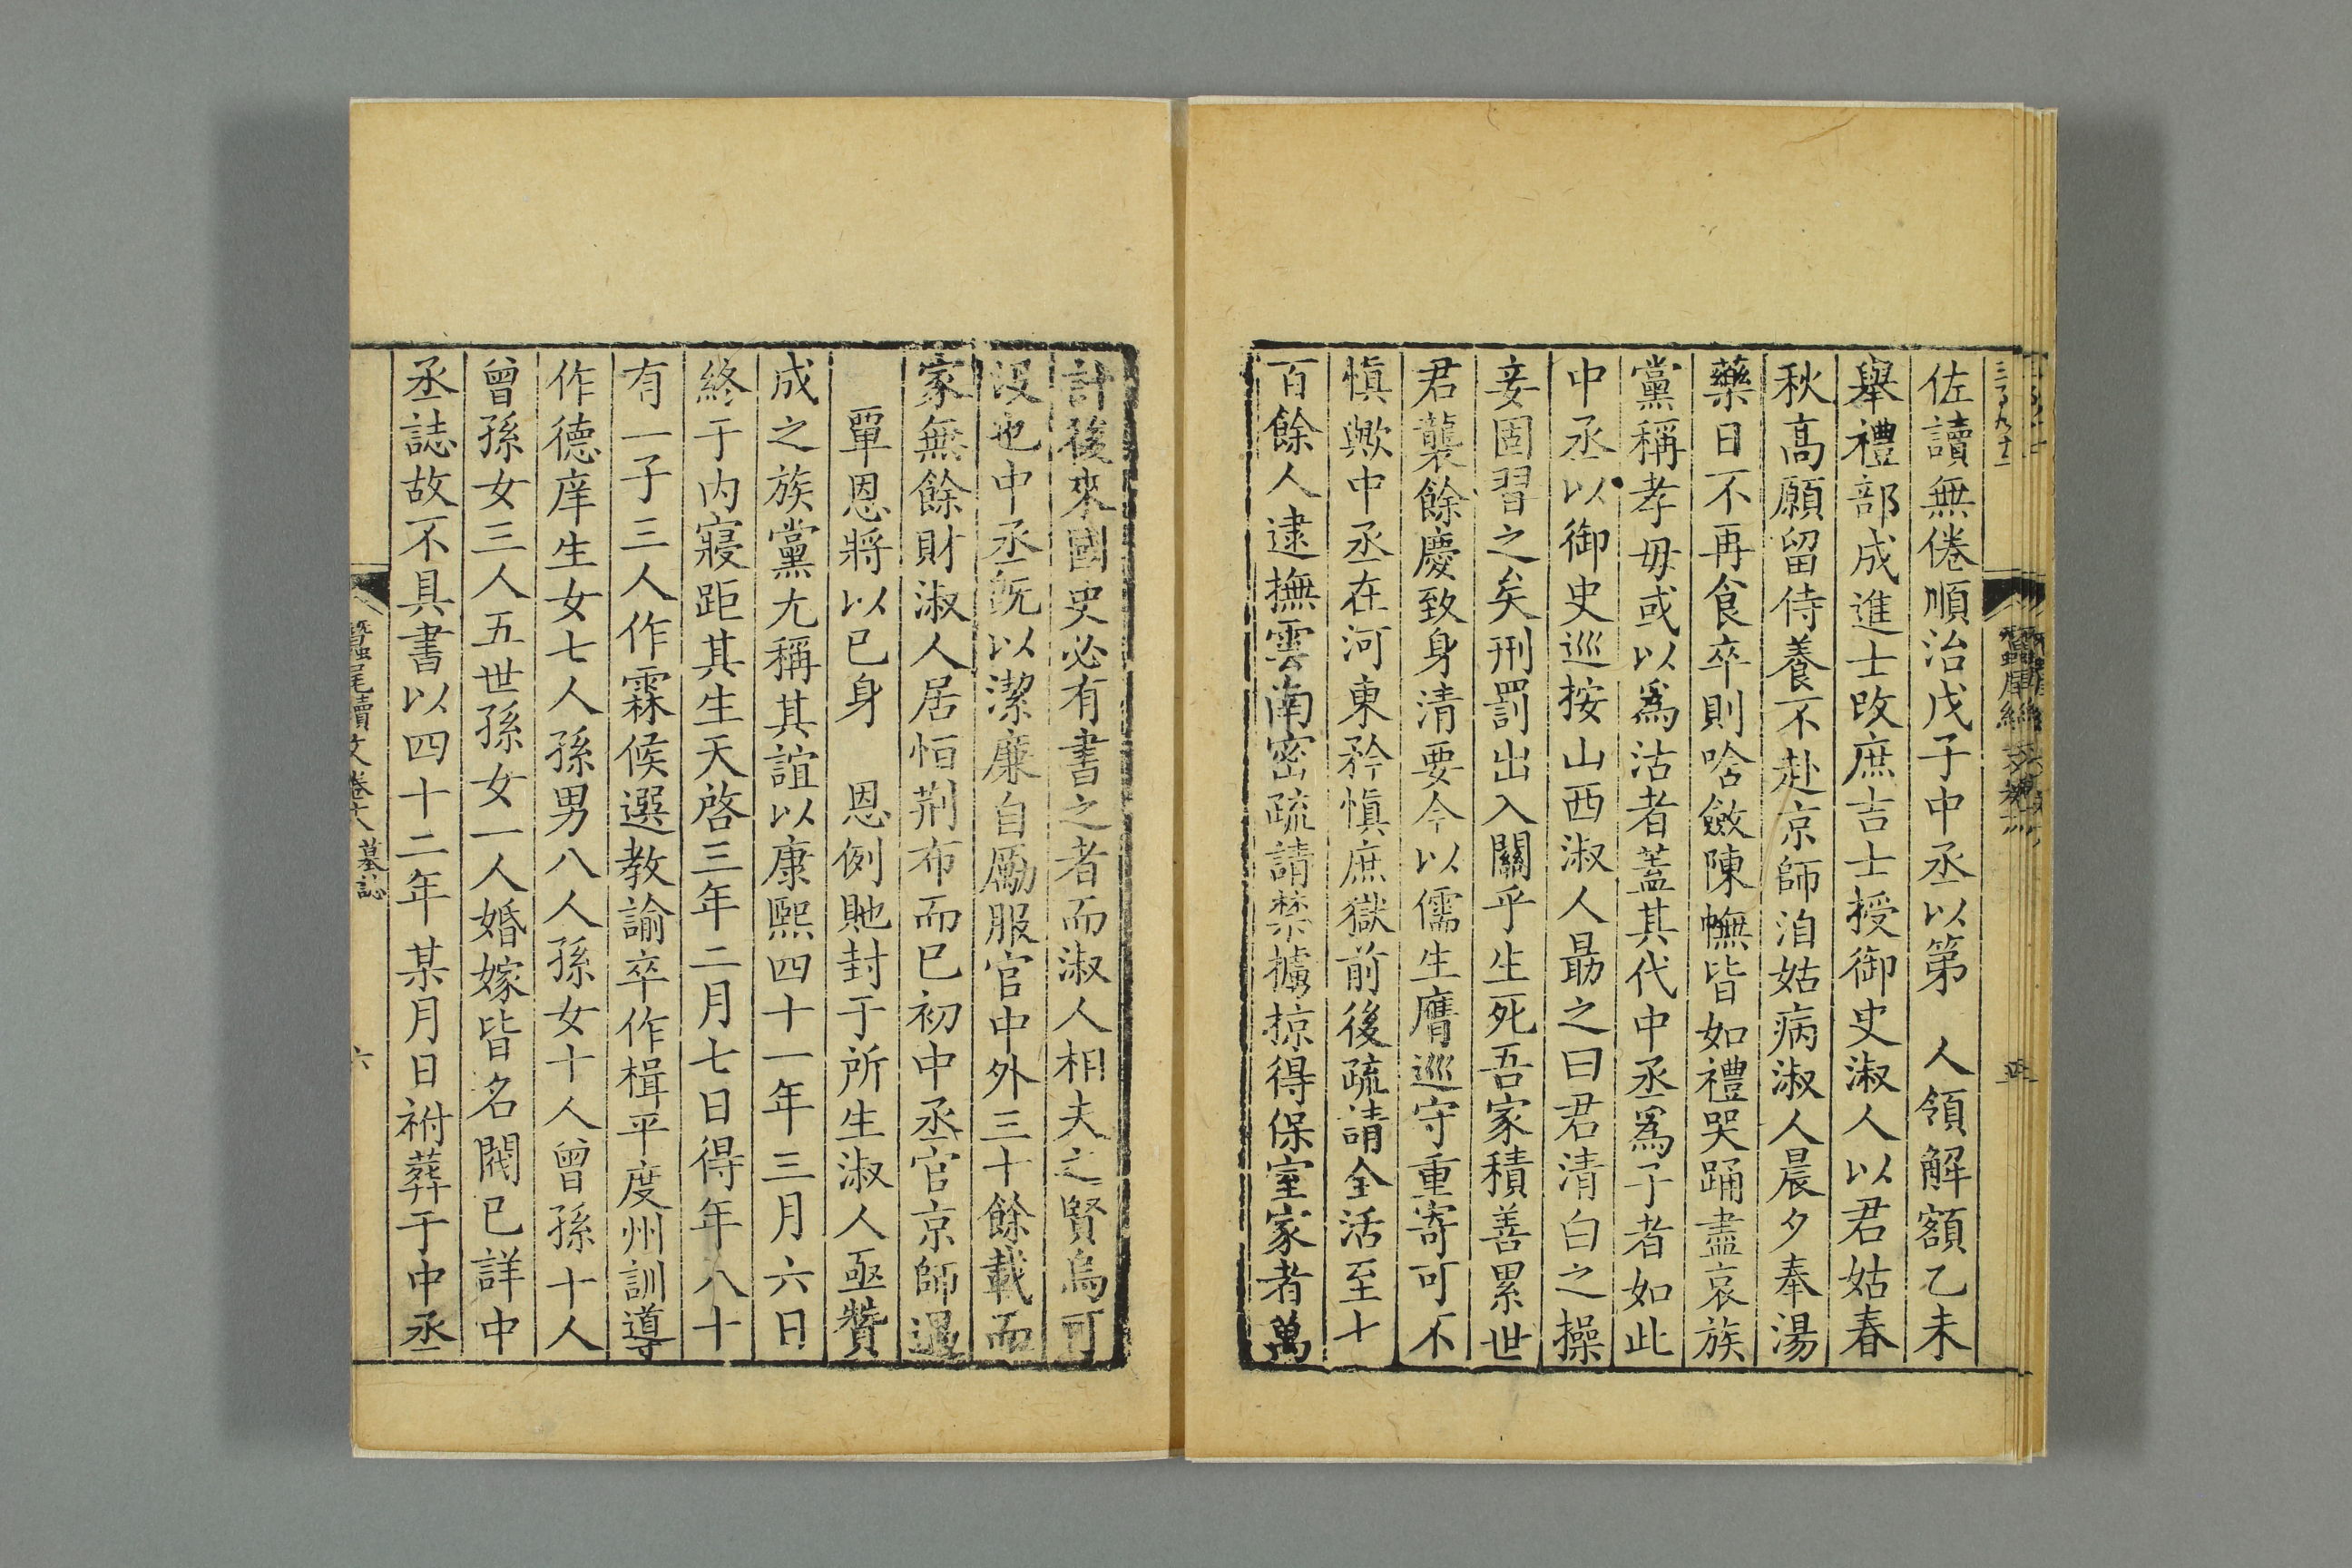 佐讀無倦順治戊子中丞以第　人領解額乙未
舉禮部成進士改庶吉士授御史淑人以君姑春
秋高願留侍養不赴京師洎姑病淑人晨夕奉湯
藥日不再食卒則唅斂陳幠皆如禮哭踊盡哀族
黨稱孝毋或以爲沽者蓋其代中丞爲子者如此
中丞以御史巡按山西淑人勗之曰君清白之操
妾固習之矣刑罰出入關乎生死吾家積善累世
君襲餘慶致身清要今以儒生膺巡守重寄可不
愼歟中丞在河東矜愼庶獄前後疏請全活至十
百餘人逮撫雲南密疏請禁擄掠得保室家者萬
計後來國史必有書之者而淑人相夫之賢烏可
没也中丞旣以潔廉自勵服官中外三十餘載而
家無餘財淑人居恒荆布而已初中丞官京師遇
覃恩將以已身　恩例貤封于所生淑人亟贊
成之族黨尤稱其誼以康熙四十一年三月六日
終于内寢距其生天啓三年二月七日得年八十
有一子三人作霖候選教諭卒作楫平度州訓導
作德庠生女七人孫男八人孫女十人曾孫十人
曾孫女三人五世孫女一人婚嫁皆名閥已詳中
丞誌故不具書以四十二年某月日祔葬于中丞
蠶尾續文卷十八 墓誌
六